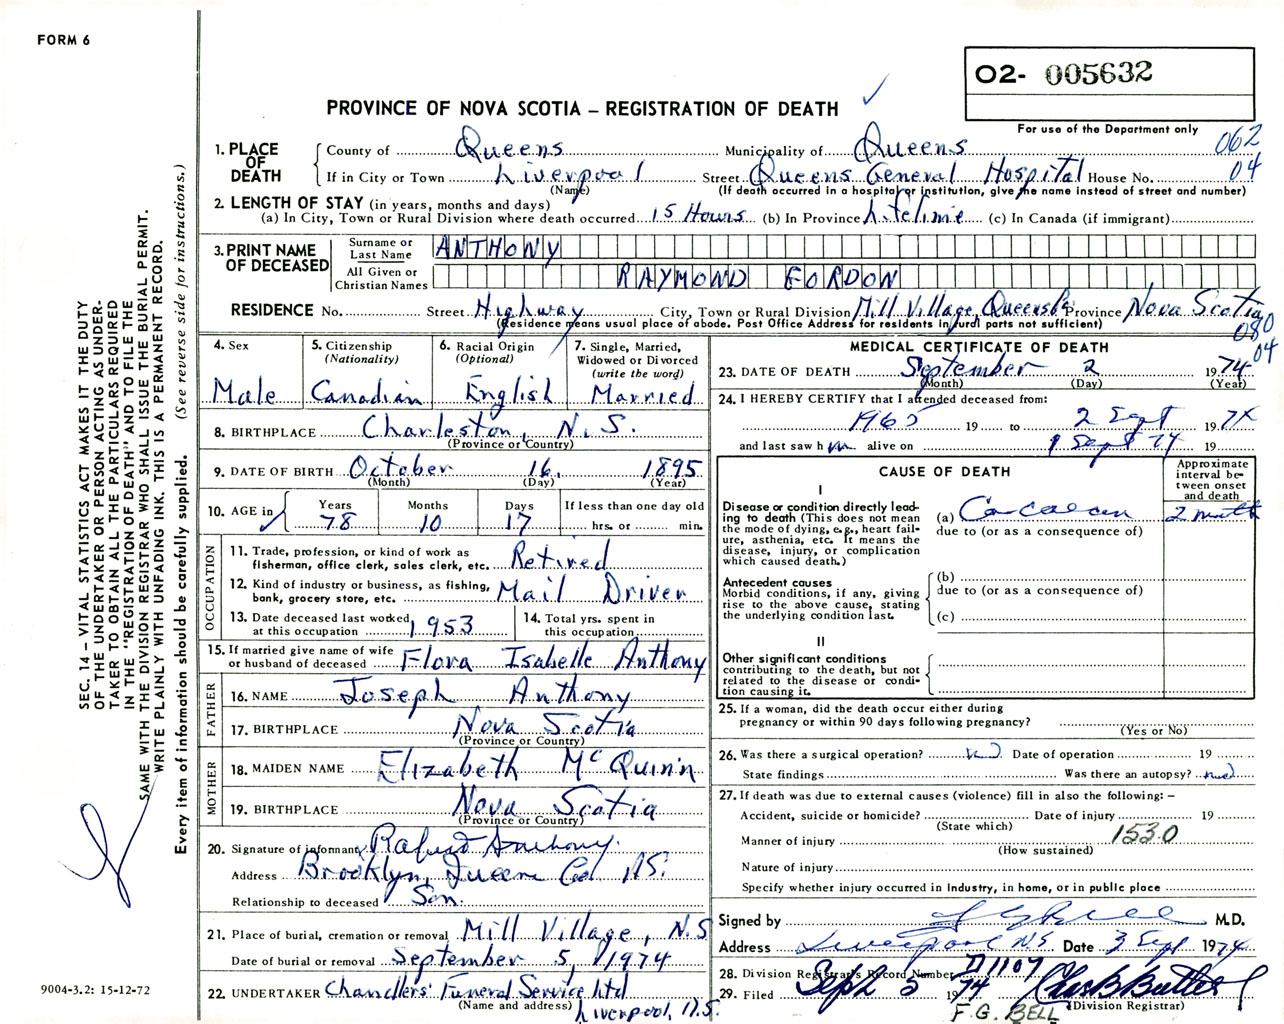 FORM 6
O2- 005632
PROVINCE OF NOVA SCOTIA – REGISTRATION OF DEATH
For use of the Department only
062
04
1. PLACE OF DEATH
County of Queens Municipality of Queens
If in City or Town Liverpool Street Queens General Hospital House No.
(Name) (If death occurred in a hospital or institution, give the name instead of street and number)
2. LENGTH OF STAY (in years, months and days)
(a) In City, Town or Rural Division where death occurred 15 Hours (b) In Province Lifetime (c) In Canada (if immigrant)
3. PRINT NAME OF DECEASED
Surname or Last Name ANTHONY
All Given or Christian Names RAYMOND GORDON
RESIDENCE No. Street Highway City, Town or Rural Division Mill Village, Queens Province Nova Scotia
(Residence means usual place of abode. Post Office Address for residents in rural parts not sufficient)
080
04
4. Sex
Male
5. Citizenship
(Nationality)
Canadian
6. Racial Origin
(Optional)
English
7. Single, Married,
Widowed or Divorced
(write the word)
Married
8. BIRTHPLACE Charleston, N.S.
(Province or Country)
9. DATE OF BIRTH October 16, 1895
(Month) (Day) (Year)
10. AGE in
Years Months Days If less than one day old
78 10 17 hrs. or min.
OCCUPATION
11. Trade, profession, or kind of work as
fisherman, office clerk, sales clerk, etc. Retired
12. Kind of industry or business, as fishing,
bank, grocery store, etc. Mail Driver
13. Date deceased last worked
at this occupation 1953
14. Total yrs. spent in
this occupation
15. If married give name of wife
or husband of deceased Flora Isabelle Anthony
FATHER
16. NAME Joseph Anthony
17. BIRTHPLACE Nova Scotia
(Province or Country)
MOTHER
18. MAIDEN NAME Elizabeth McQuinn
19. BIRTHPLACE Nova Scotia
(Province or Country)
20. Signature of informant Anthony.
Address Brooklyn, Queens Co. N.S.
Relationship to deceased Son.
21. Place of burial, cremation or removal Mill Village, N.S
Date of burial or removal September 5, 1974
22. UNDERTAKER Chandlers' Funeral Service Ltd
(Name and address) Liverpool, N.S.
MEDICAL CERTIFICATE OF DEATH
23. DATE OF DEATH September 2 1974
(Month) (Day) (Year)
24. I HEREBY CERTIFY that I attended deceased from:
1965 19 to 2 Sept 1974
and last saw him alive on 1 Sept 74 19
CAUSE OF DEATH
Approximate interval between onset and death
I
Disease or condition directly lead-
ing to death (This does not mean
the mode of dying, e.g., heart fail-
ure, asthenia, etc. It means the
disease, injury, or complication
which caused death.)
(a) 2 month
due to (or as a consequence of)
Antecedent causes
Morbid conditions, if any, giving
rise to the above cause, stating
the underlying condition last.
(b)
due to (or as a consequence of)
(c)
II
Other significant conditions
contributing to the death, but not
related to the disease or condi-
tion causing it.
25. If a woman, did the death occur either during
pregnancy or within 90 days following pregnancy?
(Yes or No)
26. Was there a surgical operation? Date of operation 19
State findings Was there an autopsy?
27. If death was due to external causes (violence) fill in also the following: –
Accident, suicide or homicide? Date of injury 19
(State which)
1530
Manner of injury
(How sustained)
Nature of injury
Specify whether injury occurred in Industry, in home, or in public place
Signed by M.D.
Address Liverpool N.S Date 3 Sept 1974
28. Division Registrar's Record Number D1107
29. Filed Sept 5 1974 Chas B Butler
(Division Registrar)
F.G. BELL
SEC. 14 – VITAL STATISTICS ACT MAKES IT THE DUTY
OF THE UNDERTAKER OR PERSON ACTING AS UNDER-
TAKER TO OBTAIN ALL THE PARTICULARS REQUIRED
IN THE "REGISTRATION OF DEATH" AND TO FILE THE
SAME WITH THE DIVISION REGISTRAR WHO SHALL ISSUE THE BURIAL PERMIT.
WRITE PLAINLY WITH UNFADING INK. THIS IS A PERMANENT RECORD.
Every item of information should be carefully supplied. (See reverse side for instructions.)
9004-3.2: 15-12-72